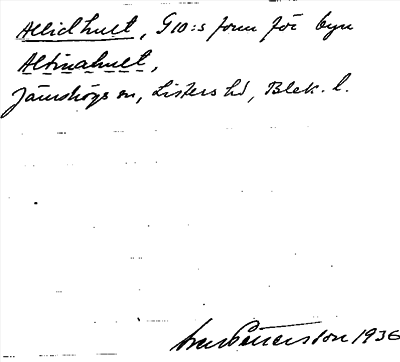 Allidhult, G10:s form för byn
Altinahult,
Jämshögs sn, Listers hd, Blek. l.
1936